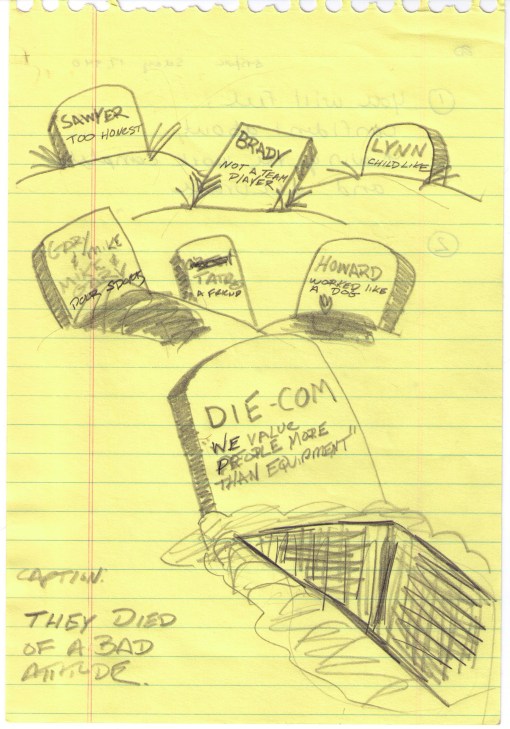 SAWYER
TOO HONEST
BRADY
NOT A TEAM
PLAYER
LYNN
CHILDLIKE
GARY MIKE
&
POOR SPORTS
A FRIEND
HOWARD
WORKED LIKE
A DOG
DIE-COM
"WE VALUE
PEOPLE MORE
THAN EQUIPMENT"
CAPTION.
THEY DIED
OF A BAD
ATTITUDE.